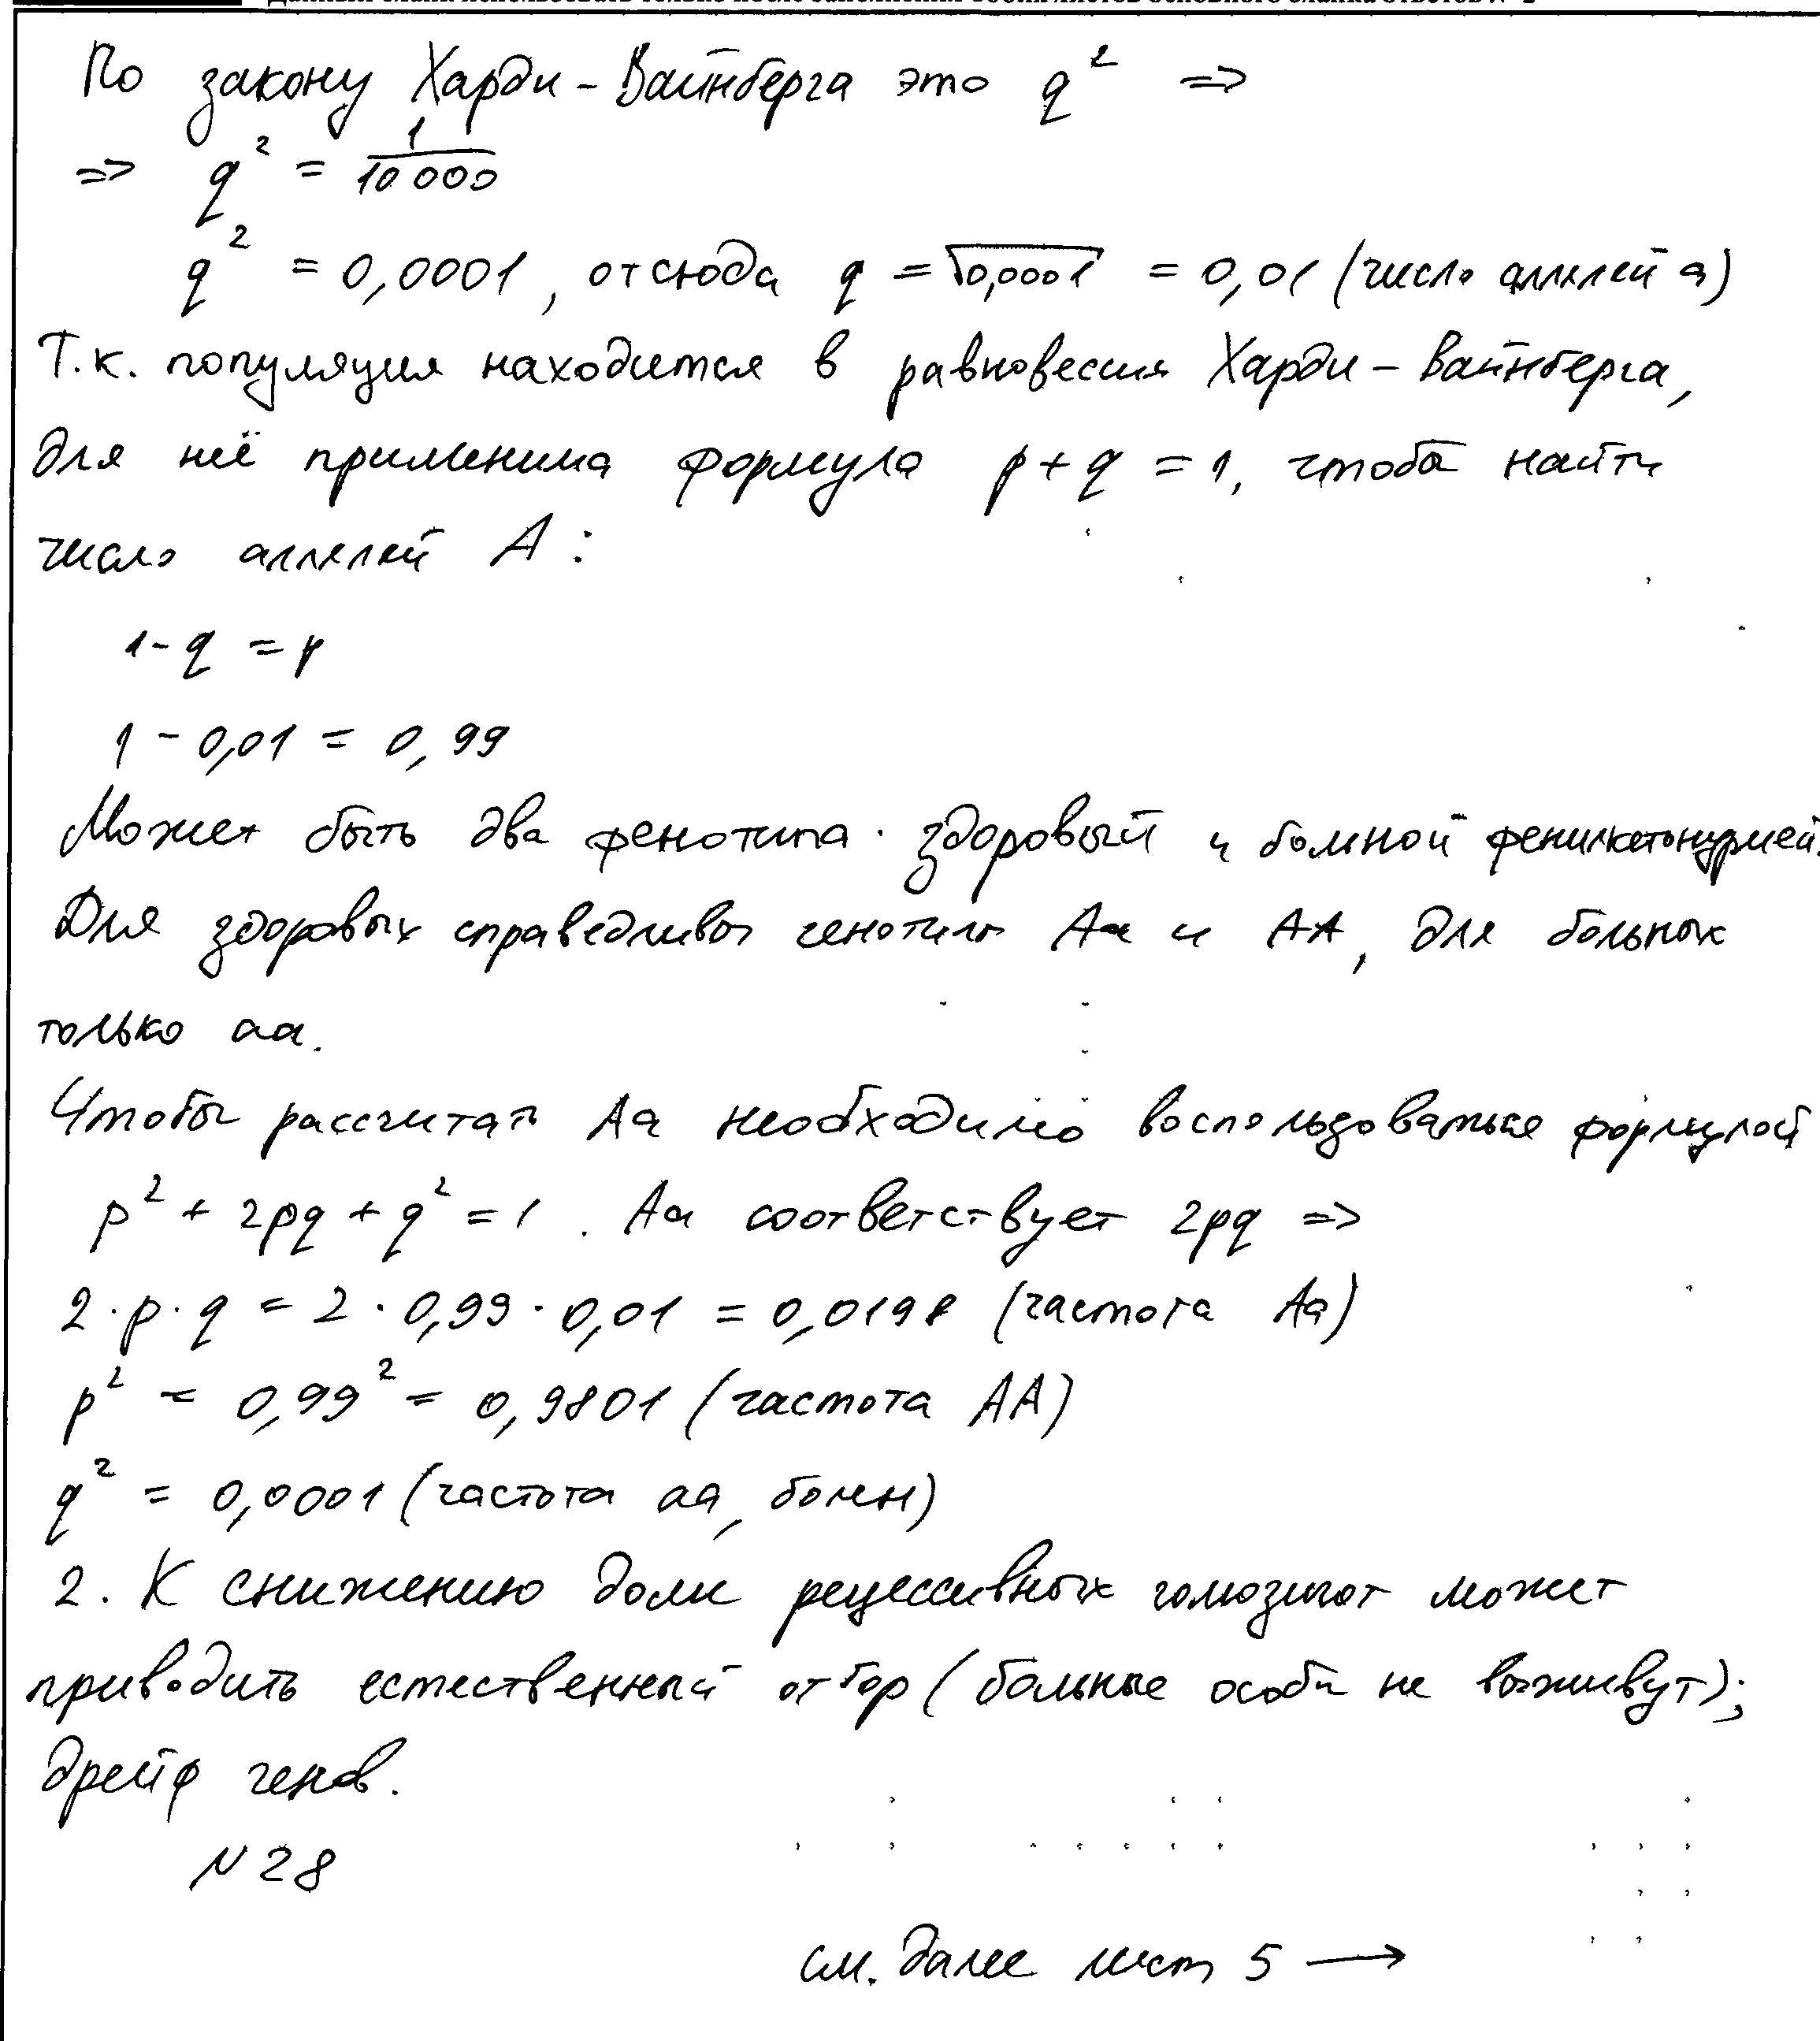 По закону Харди-Вайнберга это q² =>
=> q² = 1/10 000
q² = 0,0001, отсюда q = √0,0001 = 0,01 (число аллелей a)
Т.к. популяция находится в равновесии Харди-Вайнберга,
для неё применима формула p + q = 1, чтобы найти
число аллелей A:
1 - q = p
1 - 0,01 = 0,99
Может быть два фенотипа: здоровый и больной фенилкетонурией.
Для здоровых справедливы генотипы Aa и AA, для больных
только aa.
Чтобы рассчитать Aa необходимо воспользоваться формулой
p² + 2pq + q² = 1. Aa соответствует 2pq =>
2·p·q = 2·0,99·0,01 = 0,0198 (частота Aa)
p² = 0,99² = 0,9801 (частота AA)
q² = 0,0001 (частота aa, болен)
2. К снижению доли рецессивных гомозигот может
приводить естественный отбор (больные особи не выживут);
дрейф генов.
N 28
см. далее лист 5 →